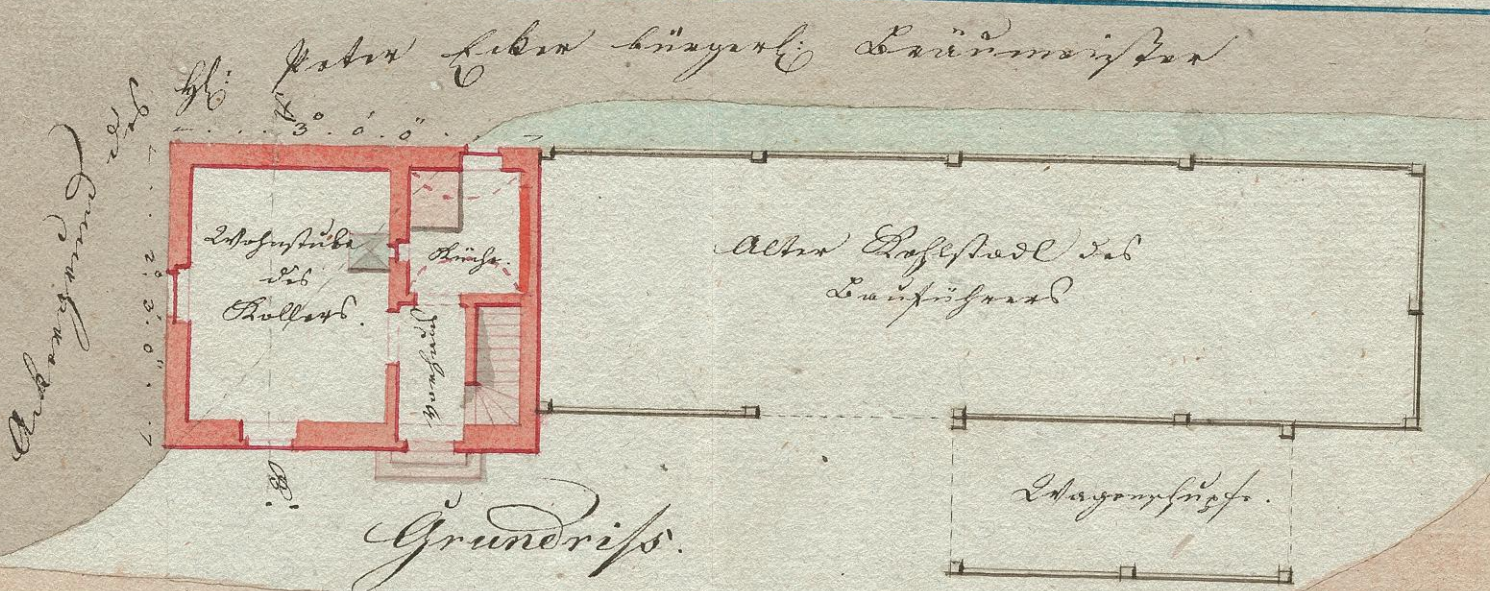 H: Peter Ecker bürgerl: Bräumeister
des
A
3° 0' 0"
2° 3' 0"
Wohnstube
des
Kollers.
Küche.
Vorhaus
Alter Kohlstadl des
Bauführers
Wagenschupfe.
B.
Grundriſs.